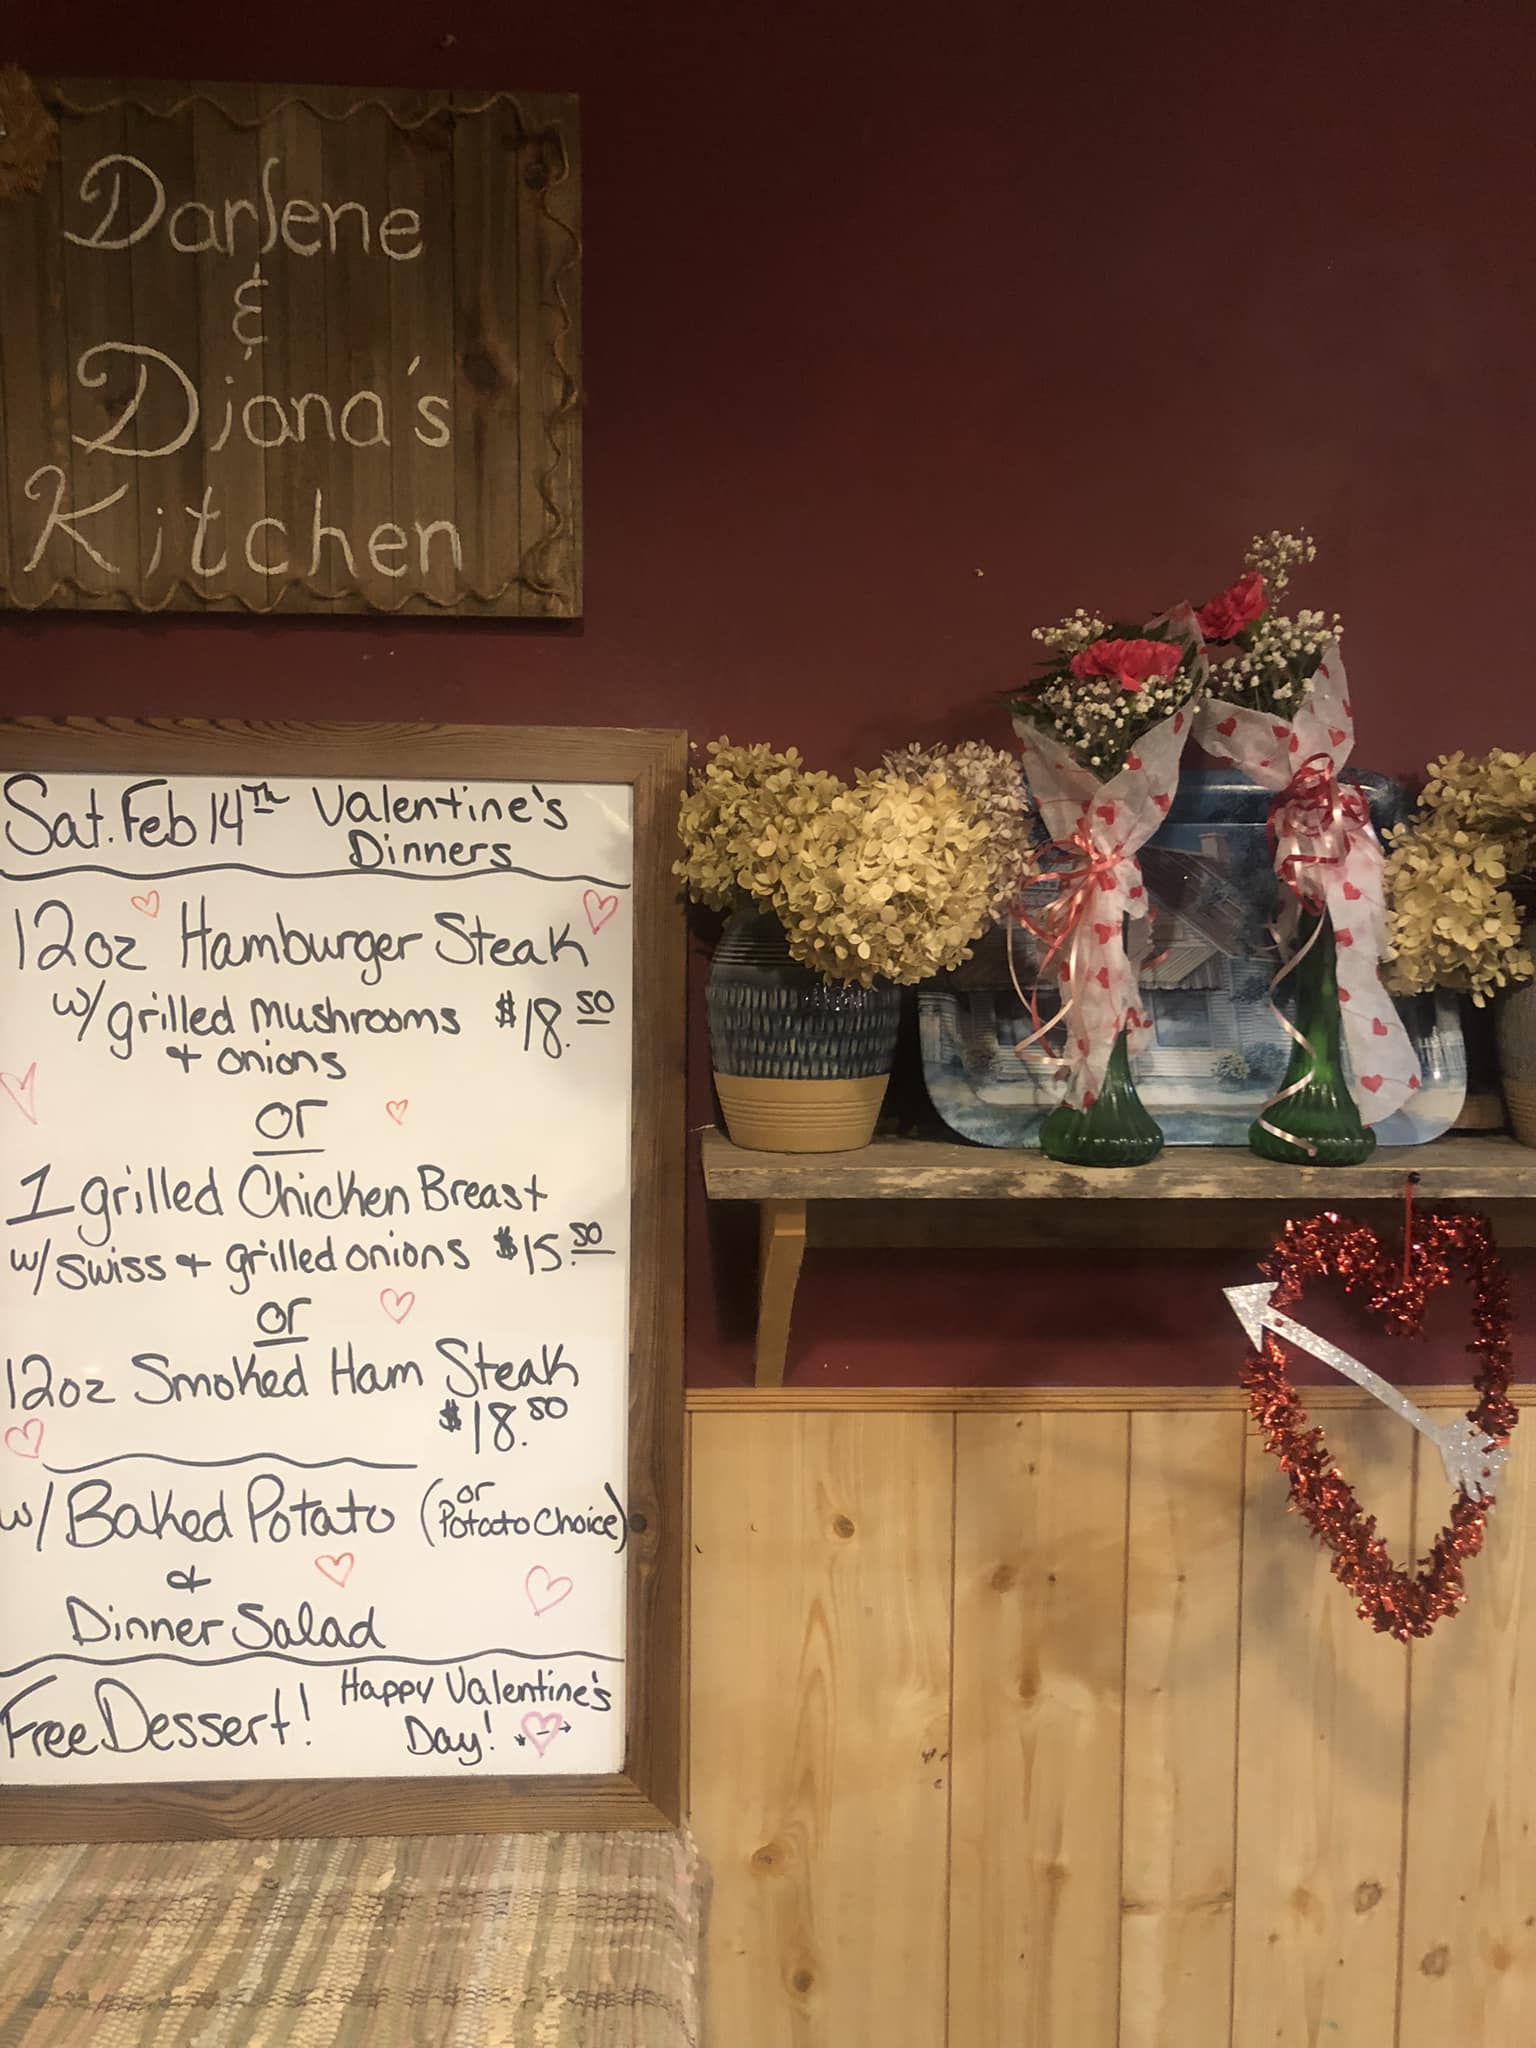 Darlene
&
Diana's
Kitchen
Sat. Feb 14th Valentine's
Dinners
12oz Hamburger Steak
w/ grilled mushrooms $18.50
+ onions
or
1 grilled Chicken Breast
w/ swiss + grilled onions $15.50
or
12oz Smoked Ham Steak
$18.50
w/ Baked Potato (or Potato Choice)
+
Dinner Salad
Free Dessert! Happy Valentine's
Day!